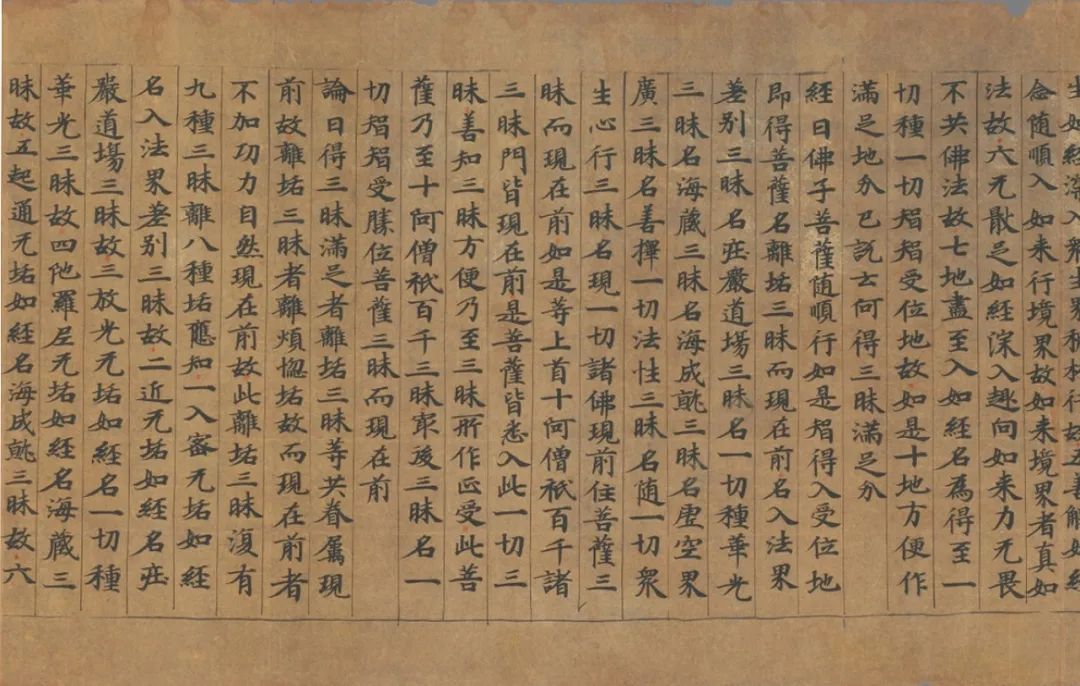 生如經深入衆生界行故五善解如經
念随順入如来行境界故如来境界者真如
法故六无散乏如經深入趣向如来力无畏
不共佛法故七地盡至入如經名為得至一
切種一切智智受位地故如是十地方便作
滿足地分已說云何得三昧滿足分
經曰佛子菩薩随順行如是智得入受位地
即得菩薩名離垢三昧而現在前名入法界
差别三昧名莊嚴道場三昧名一切種華光
三昧名海藏三昧名海成就三昧名虚空界
廣三昧名善擇一切法性三昧名随一切衆
生心行三昧名現一切諸佛現前住菩薩三
昧而現在前如是等上首十阿僧祇百千諸
三昧門皆現在前是菩薩皆悉入此一切三
昧善知三昧方便乃至三昧所作正受此菩
薩乃至十阿僧祇百千三昧最後三昧名一
切智智受勝位菩薩三昧而現在前
論曰得三昧滿足者離垢三昧等共眷屬現
前故離垢三昧者離煩惱垢故而現在前者
不加功力自然現在前故此離垢三昧復有
九種三昧離八種垢應知一入密无垢如經
名入法界差别三昧故二近无垢如經名莊
嚴道場三昧故三放光无垢如經名一切種
華光三昧故四陁羅尼无垢如經名海藏三
昧故五起通无垢如經名海成就三昧故六